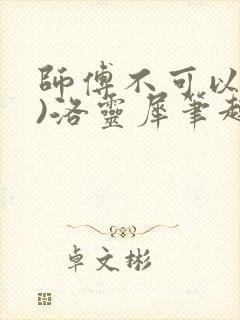 師傅不可以
)洛靈犀筆趣
卓文彬